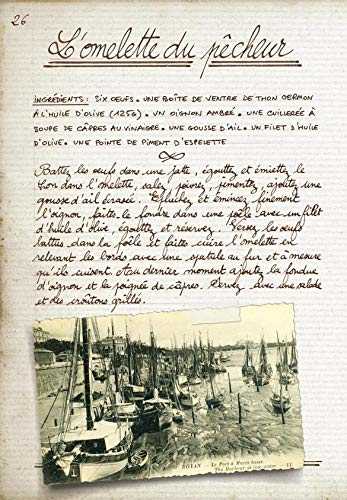 26
L'omelette du pêcheur
INGRÉDIENTS : SIX OEUFS. UNE BOÎTE DE VENTRE DE THON GERMON
À L'HUILE D'OLIVE (125G). UN OIGNON AMBRÉ. UNE CUILLERÉE À
SOUPE DE CÂPRES AU VINAIGRE. UNE GOUSSE D'AIL. UN FILET D'HUILE
D'OLIVE. UNE POINTE DE PIMENT D'ESPELETTE
Battez les oeufs dans une jatte, égouttez et émiettez le
thon dans l'omelette, salez, poivrez, pimentez, ajoutez une
gousse d'ail écrasée. Epluchez et émincez finement
l'oignon, faites-le fondre dans une poêle avec un filet
d'huile d'olive, égouttez et réservez. Versez les oeufs
battus dans la poêle et faites cuire l'omelette en
relevant les bords avec une spatule au fur et à mesure
qu'ils cuisent. Au dernier moment ajoutez la fondue
d'oignon et la poignée de câpres. Servez avec une salade
et des croûtons grillés.
ROYAN - Le Port à Marée basse
The Harbour at low water
LL